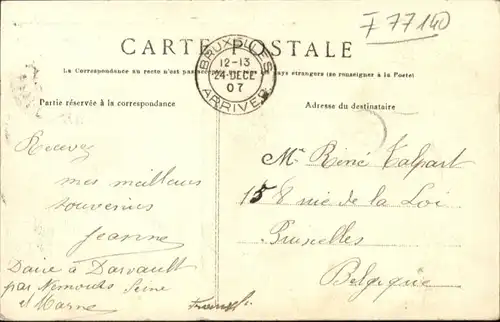 F 77140
CARTE POSTALE
La Correspondance au recto n'est pas acceptée pays étrangers (se renseigner à la Poste)
BRUXELLES
12-13
24 DECE
07
ARRIVEE
Partie réservée à la correspondance
Adresse du destinataire
Recevez
mes meilleurs
souvenirs
Jeanne
Daire à Darvault
par Nemours Seine
et Marne
Mr René Talpart
158 rue de la Loi
Bruxelles
Belgique